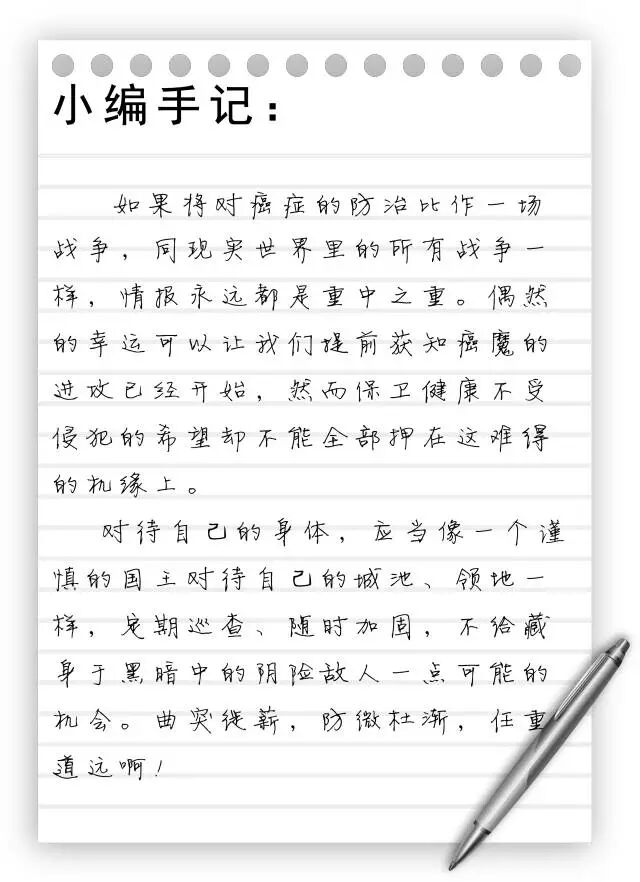 小编手记：
如果将对癌症的防治比作一场
战争，同现实世界里的所有战争一
样，情报永远都是重中之重。偶然
的幸运可以让我们提前获知癌魔的
进攻已经开始，然而保卫健康不受
侵犯的希望却不能全部押在这难得
的机缘上。
对待自己的身体，应当像一个谨
慎的国王对待自己的城池、领地一
样，定期巡查、随时加固，不给藏
身于黑暗中的阴险敌人一点可能的
机会。曲突徙薪，防微杜渐，任重
道远啊！